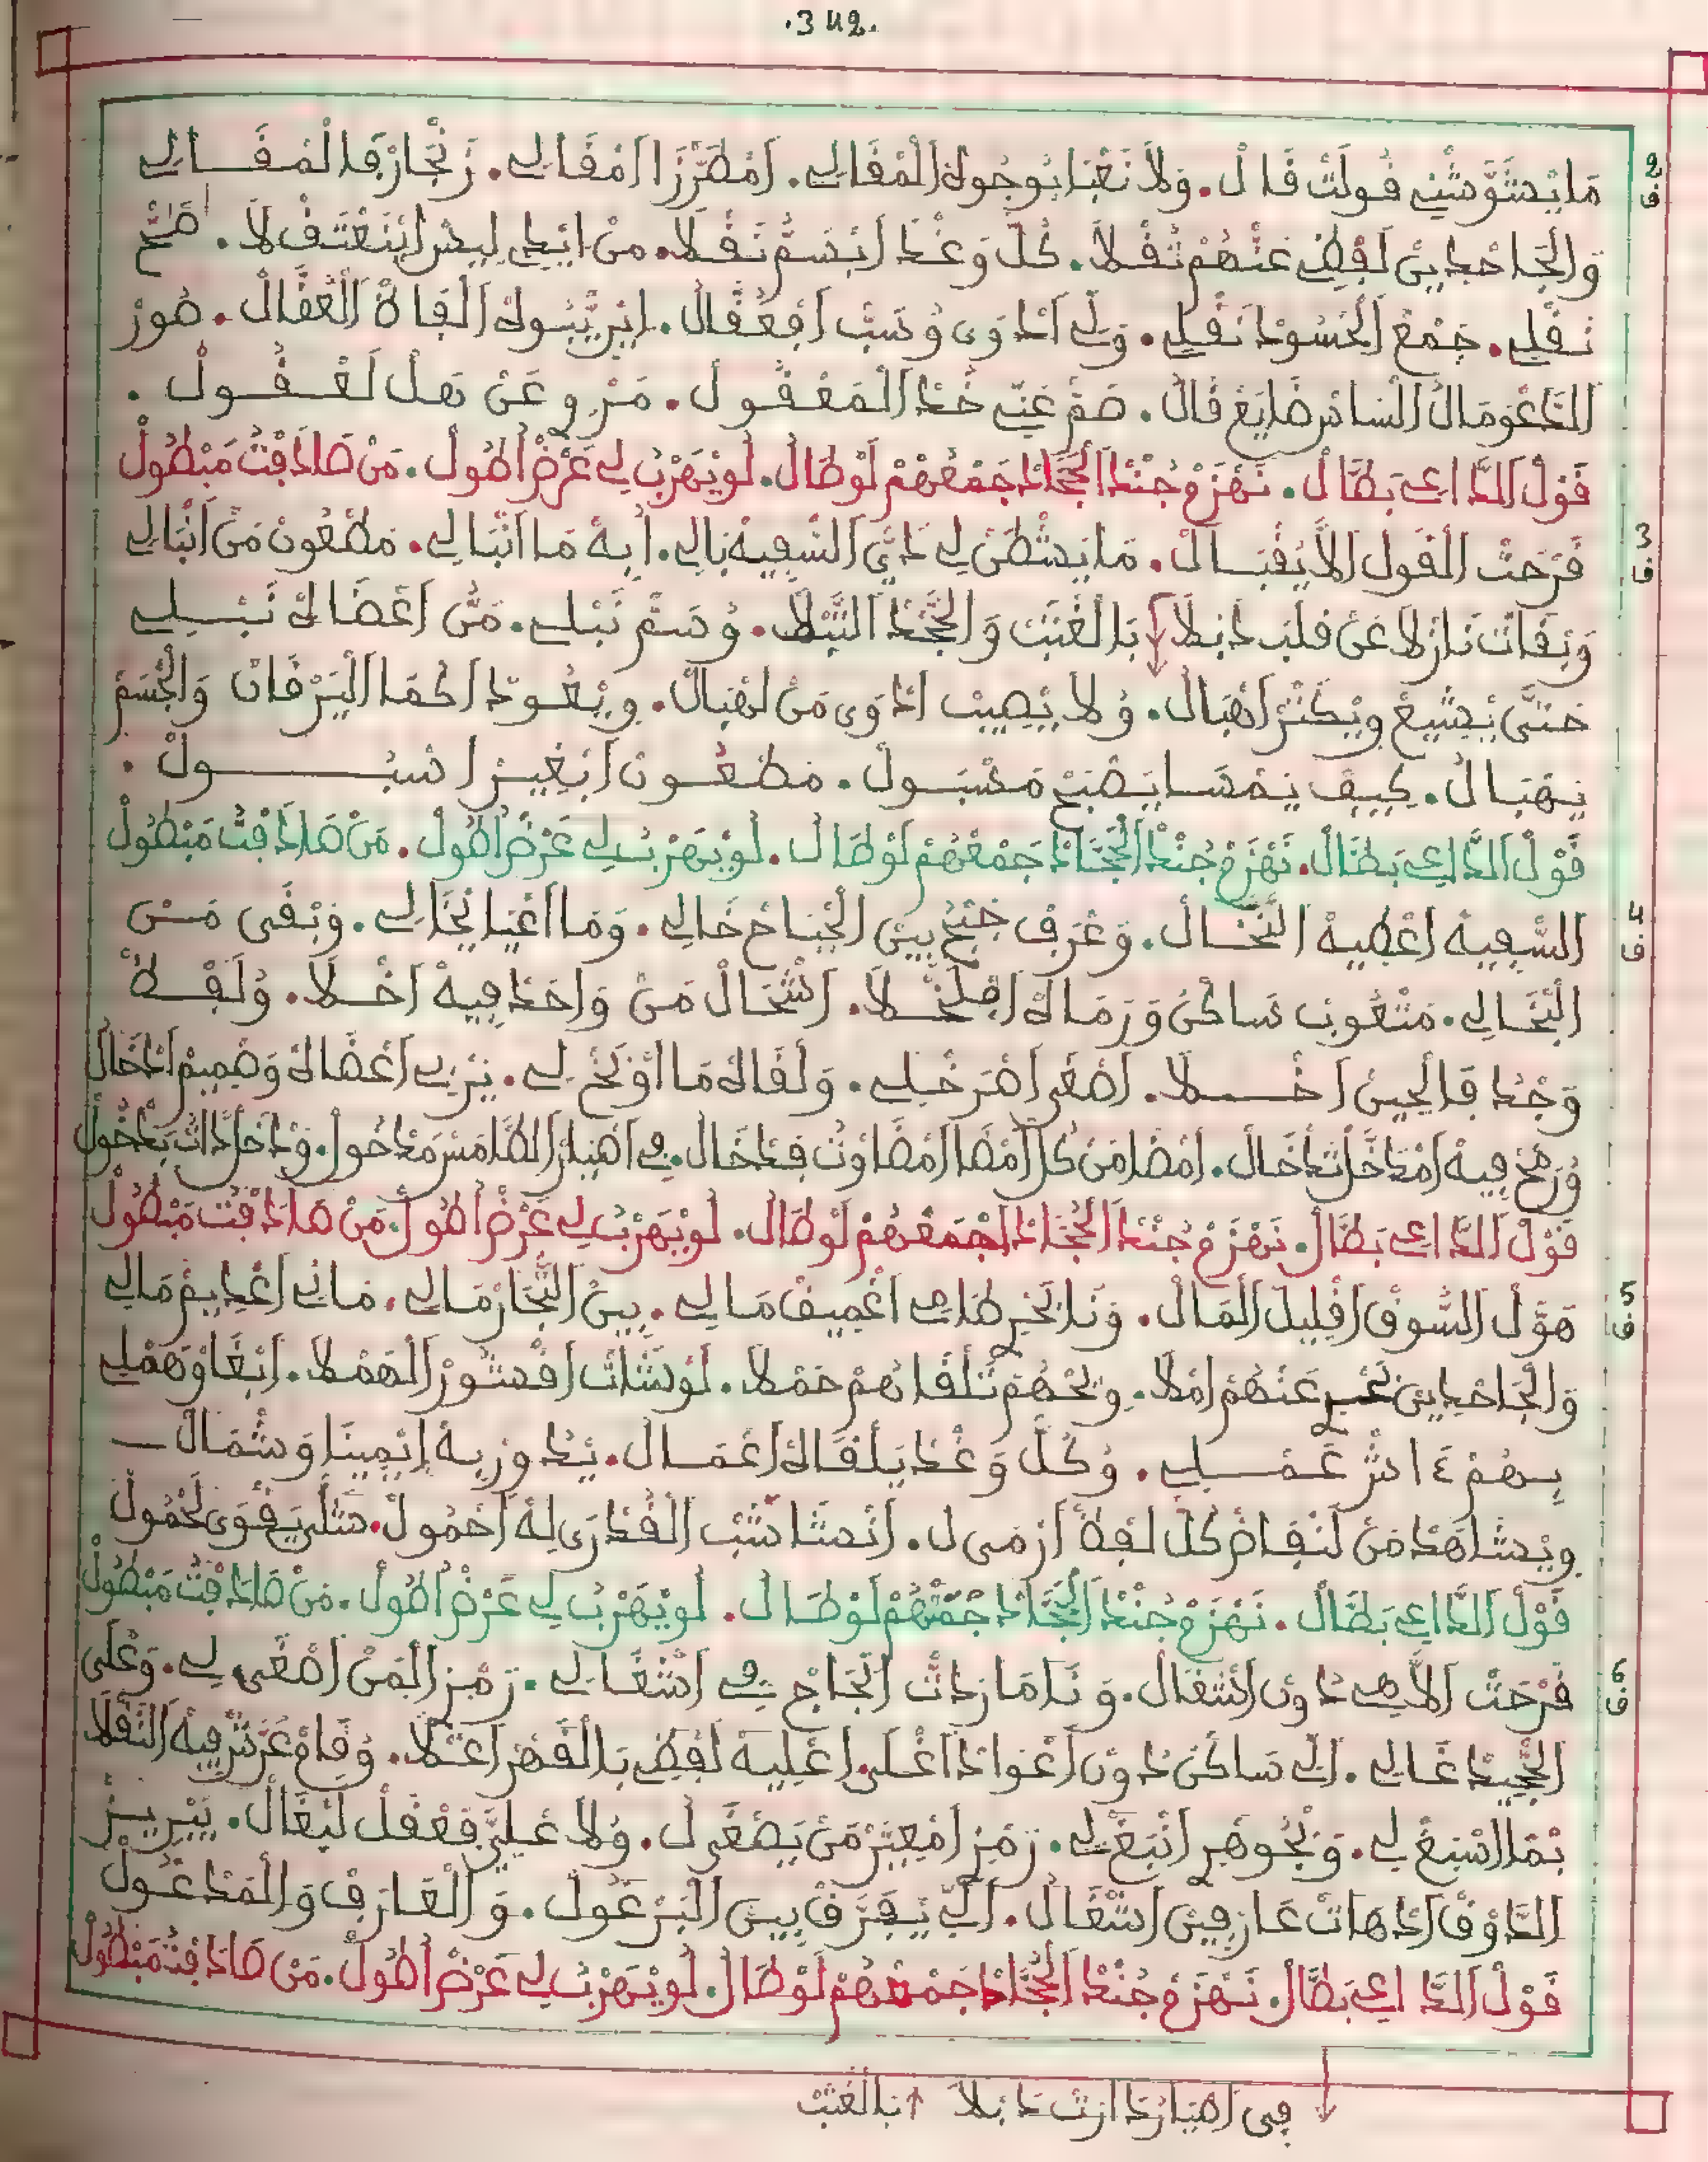 .342.
2 مَا يْشَوَّشْنِي قُولَتْ قَالْ. وَلاَ نَعْبَا بُوجُوكْ الْمْقَالِي. اَمْطَرَّزْ اَمْقَالِي. زَنْجَارْ فَالْمُقَــالِي
ف وَالْجَاحْدِينْ لَفْظِي عَنْهُمْ ثُقْلاَ. كُلّ وَغْدْ اَبْسَمّْ نَقْلاَ. مَنْ اَيْدِي لِيسْ اَيَنْعْتَقْ لاَ. صَحّ
نَقْلِي. جَمْعْ الْحْسُودْ نَقْلِي. وَلِّي اَدْوَى وُسَبّْ اَفْعُقَّالْ. اَبْرِيّْبُوكْ اَلْفَاهْ الْعُقَّالْ. صُورْ
الدَّعْوَ مَالْ النَّاسْ ضَايَعْ قَالْ. صَمّْ عَنِّي خُدْ الْمَعْقُولْ. مَرْوِ عَنْ هَلْ لَعْقُولْ.
قَوْلْ الدَّاعِي بَطَّالْ. نَهْزَمْ جُنْدْ الْجُحَّادْ جَمْعْهُمْ لَوْ طَالْ. لَوْ يَهْرَبْ لِي عَرْضْ اَطُولْ. مَنْ صَادَفْتُ مَبْطُولْ
3 فَرْحَتْ الْقَولْ اَلاَّ يُقْبَــالْ. مَا يَشْطَنْ لِي دَايْ السّْفِيهْ بَالِي. اَبِهْ مَا اَنْبَالِي. مَطْعُونْ مَنْ اَنْبَالِي
ف وَبْقَاتْ نَازْلاَ عَنْ قَلْبْ دَبْلاَ بَالْغُبَّتْ وَالْجَّحْدْ النّْبْلاَ. وُسَمّْ نَبْلِي. مَنّْ اَعْضَاكْ نَبْــلِي
حَتَّى يْشِيعْ وِيْكَتَّرْ اَهْبَالْ. وُلاَ يْصِيبْ اَدْوَى مَنْ لَهْبَالْ. وِيْعُودْ اَكْمَا الْيَرْقَانْ وَالْجْسَمْ
يَهْبَالْ. كِيفْ يَمْسَا يَصْبَحْ مَخْبَولْ. مَطْعُونْ اَبْغِيرْ اَسْبُولْ.
قَوْلْ الدَّاعِي بَطَّالْ. نَهْزَمْ جُنْدْ الْجُحَّادْ جَمْعْهُمْ لَوْ طَالْ. لَوْ يَهْرَبْ لِي عَرْضْ اَطُولْ. مَنْ صَادَفْتْ مَبْطُولْ
4 السّْفِيهْ اَعْطِيهْ النُّخَــالْ. وَعْرَفْ جَبْحْ بِينْ الْجْبَاحْ خَالِي. وَمَا اَعْبَا نْخَالِي. وَبْقَى مَسْ
ف النّْخَالِي. مَتْعُوبْ سَاكْنْ وَرْمَاكْ اَفْلَخْــلاَ. اَشْحَالْ مَنْ وَاحَدْ فِيهْ اَخْــلاَ. وُلَفْظْ
وَجْدْ فَالْحِينْ اَخْــلاَ. اَصْغَى اَهْرَ خْلِي. وَلْقَاكْ مَا اَوْخَ لِي. يَبْرِي اَعْضَاكْ وَصْمِيمْ اَدْخَالْ
وُرَجَّحْ فِيهْ اَمْدَخَّلْ تَدْخَالْ. اَمْضَا مَنْ كُلّْ اَمْضَا اَمْضَاوْتْ فَدْخَالْ. فِي اَهْبَارْ الظَّالَمْ سَرْ مَدْخُولْ. وَدْخَلْ دَاتْ بَدْخُولْ
قَوْلْ الدَّاعِي بَطَّالْ. نَهْزَمْ جُنْدْ الْجُحَّادْ اجْمَعْهُمْ لَوْ طَالْ. لَوْ يَهْرَبْ لِي عَرْضْ اَطُولْ. مَنْ صَادَفْتْ مَبْطُولْ
5 هَوَّلْ السُّوقْ اَقْلِيلْ الْمَالْ. وَنَا بْحْرِ طَامِي اَغْمِيقْ مَا لِي. بِينْ التُّجَّارْ مَالِي. مَانِي اَعْدِيمْ مَالِي
ف وَالْجَاحْدِينْ نَحَّبْ عَنْهُمْ اَمْلاَ. وِيْحْهُمْ تَلْقَاهُمْ حَمْلاَ. لَوْ شَاتْ اَفْشُورْ الْهَمْلاَ. اَبْغَاوْ هَمْلِي
بِهُمْ ءَاشْ عَمْــلِي. وُكُلّْ وَغْدْ يَلْقَاكْ اَعْمَــالْ. يَدُورْ بِهْ اِيْمِينَا وَشْمَالْ
وِيْشَاهَدْ مَنْ لَنْفَاضْ كُلّْ لَفْظْ اَزْمَى لْ. اَنْشَا سَبْتْ الْقُدْرَى لِهْ اَحْمُولْ. مَثْلِي يَقْوَى لَحْمُولْ
قَوْلْ الدَّاعِي بَطَّالْ. نَهْزَمْ جُنْدْ الْجُحَّادْ جَمْعْهُمْ لَوْ طَــالْ. لَوْ يَهْرَبْ لِي عَرْضْ اَطُولْ. مَنْ صَادَفْتْ مَبْطُولْ
6 فَرْحَتْ اَلاَّهِي دُونْ اَشْغَالْ. وَنَا مَا زَدْتْ اَلْجَاجْ فِي اَشْغَالِي. رَمْزْ الْمَنْ اَصْغَى لِي. وَعْلَى
ف الْجِّيدْ غَالِي. اَلِي سَاكَنْ دُونْ اَعْوَادْ اَغْلَى. اَعْلِيهْ لَفْظِي بَالْقَهْرْ اَعْتْلاَ. وُقَامْ عَرَّتْ فِيهْ النَّقْلاَ
بْمَا اَسْبَغْ لِي. وَبْجُوهْرِ اَنْبَغْ لِي. رَمْزْ اَمْعِيَّرْ مَنْ يَصْغَى لْ. وُلاَ عْلِيَّ فَعْقَلْ لَبْغَالْ. يْبِرِيزْ
الدَّوْقْ اَدْهَاتْ عَارْفِينْ اَشْغَالْ. اَلِّي يَفْرَقْ بِينْ الْبَرْغُولْ. وَالْعَارَفْ وَالْمَدْغُولْ
قَوْلْ الدَّاعِي بَطَّالْ. نَهْزَمْ جُنْدْ الْجُحَّادْ جَمْعْهُمْ لَوْ طَالْ. لَوْ يَهْرَبْ لِي عَرْضْ اَطُولْ. مَنْ صَادَفْتْ مَبْطُولْ
فِي اَهْبَارْ دَارْتْ دَبْلاَ ↑ بَالْغُبَّتْ